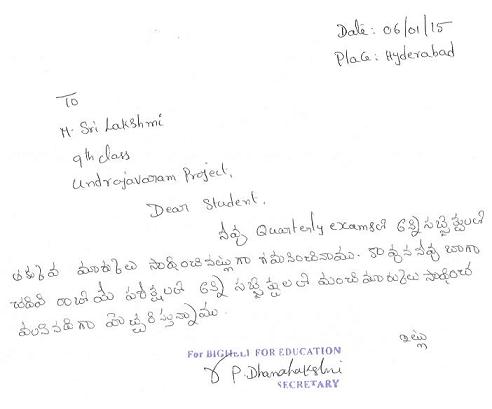 Date: 06/01/15
Place: Hyderabad
To
M. Sri Lakshmi
9th class
Undrajavaram Project.
Dear Student.
నీవు Quarterly examsలో కొన్ని సబ్జెక్టులలో
తక్కువ మార్కులు సాధించినట్లుగా గమనించినాము. కావున నీవు బాగా
చదివి రాబోయే పరీక్షలలో అన్ని సబ్జెక్టులలో మంచి మార్కులు సాధించ
వలసినదిగా హెచ్చరిస్తున్నాము.
ఇట్లు
For BIGHELP FOR EDUCATION
P. Dhanalakshmi
SECRETARY